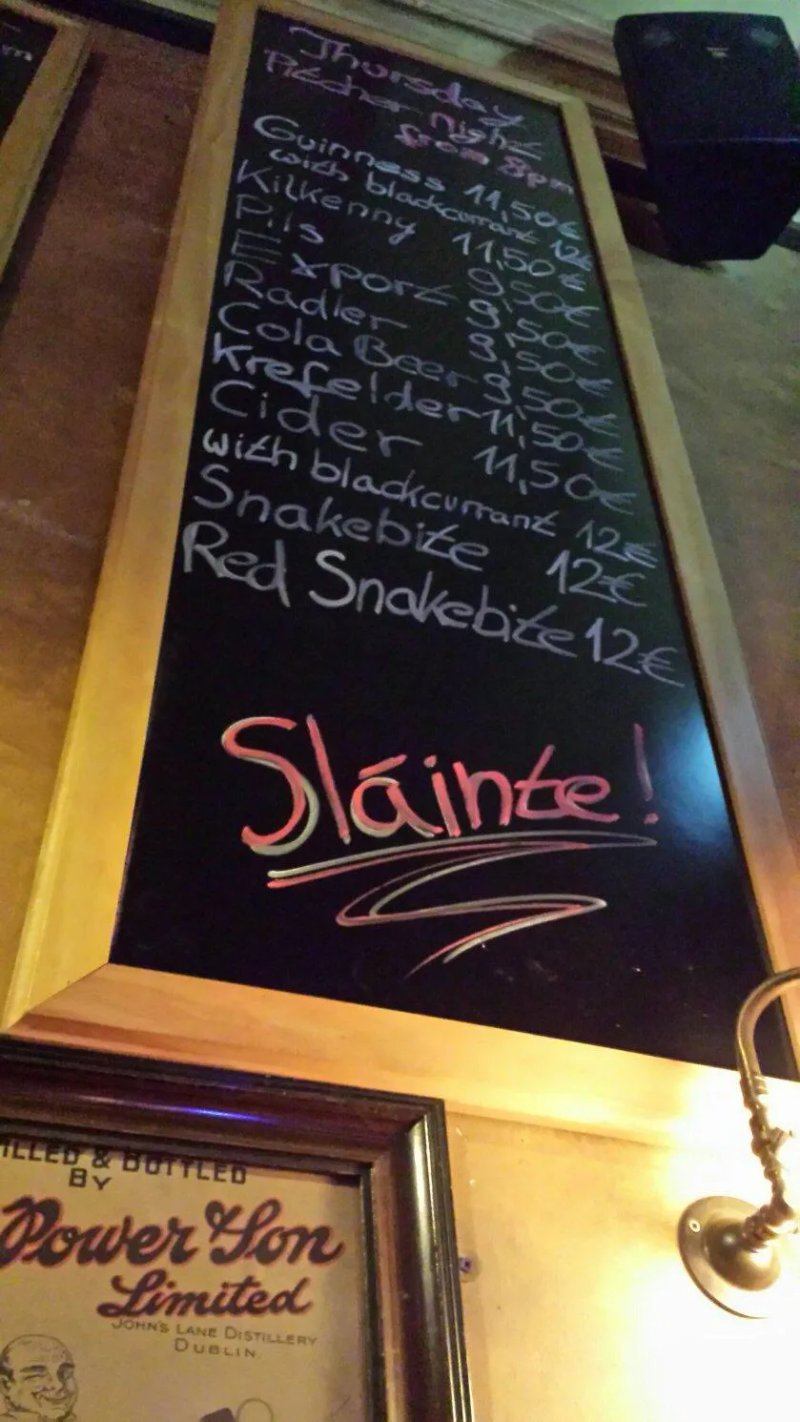 Thursday
Pitcher Night
from 8pm
Guinness 11,50€
with blackcurrant 12€
Kilkenny 11,50€
Pils 9,50€
Export 9,50€
Radler 9,50€
Cola Beer 9,50€
Krefelder 11,50€
Cider 11,50€
with blackcurrant 12€
Snakebite 12€
Red Snakebite 12€
Sláinte!
ILLED & BOTTLED
BY
Power & Son
Limited
JOHN'S LANE DISTILLERY
DUBLIN.